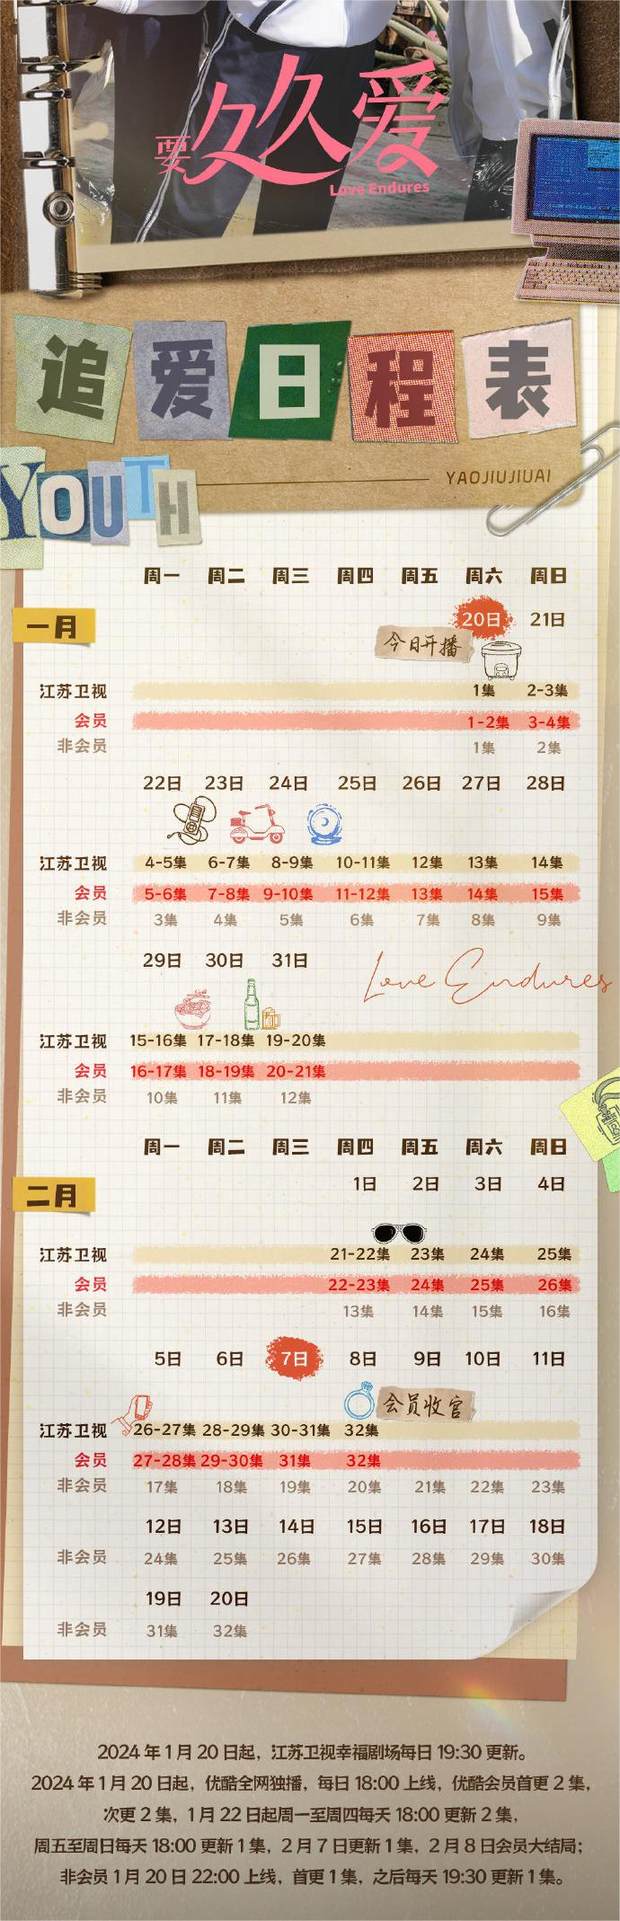 要久久爱
Love Endures
追爱日程表
YOUTH
YAOJIUJIUAI
周一 周二 周三 周四 周五 周六 周日
一月 20日 21日
今日开播
江苏卫视 1集 2-3集
会员 1-2集 3-4集
非会员 1集 2集
22日 23日 24日 25日 26日 27日 28日
江苏卫视 4-5集 6-7集 8-9集 10-11集 12集 13集 14集
会员 5-6集 7-8集 9-10集 11-12集 13集 14集 15集
非会员 3集 4集 5集 6集 7集 8集 9集
29日 30日 31日
Love Endures
江苏卫视 15-16集 17-18集 19-20集
会员 16-17集 18-19集 20-21集
非会员 10集 11集 12集
周一 周二 周三 周四 周五 周六 周日
二月 1日 2日 3日 4日
江苏卫视 21-22集 23集 24集 25集
会员 22-23集 24集 25集 26集
非会员 13集 14集 15集 16集
5日 6日 7日 8日 9日 10日 11日
会员收官
江苏卫视 26-27集 28-29集 30-31集 32集
会员 27-28集 29-30集 31集 32集
非会员 17集 18集 19集 20集 21集 22集 23集
12日 13日 14日 15日 16日 17日 18日
非会员 24集 25集 26集 27集 28集 29集 30集
19日 20日
非会员 31集 32集
2024 年 1 月 20 日起，江苏卫视幸福剧场每日 19:30 更新。
2024 年 1 月 20 日起，优酷全网独播，每日 18:00 上线，优酷会员首更 2 集，
次更 2 集，1 月 22 日起周一至周四每天 18:00 更新 2 集，
周五至周日每天 18:00 更新 1 集，2 月 7 日更新 1 集，2 月 8 日会员大结局；
非会员 1 月 20 日 22:00 上线，首更 1 集，之后每天 19:30 更新 1 集。